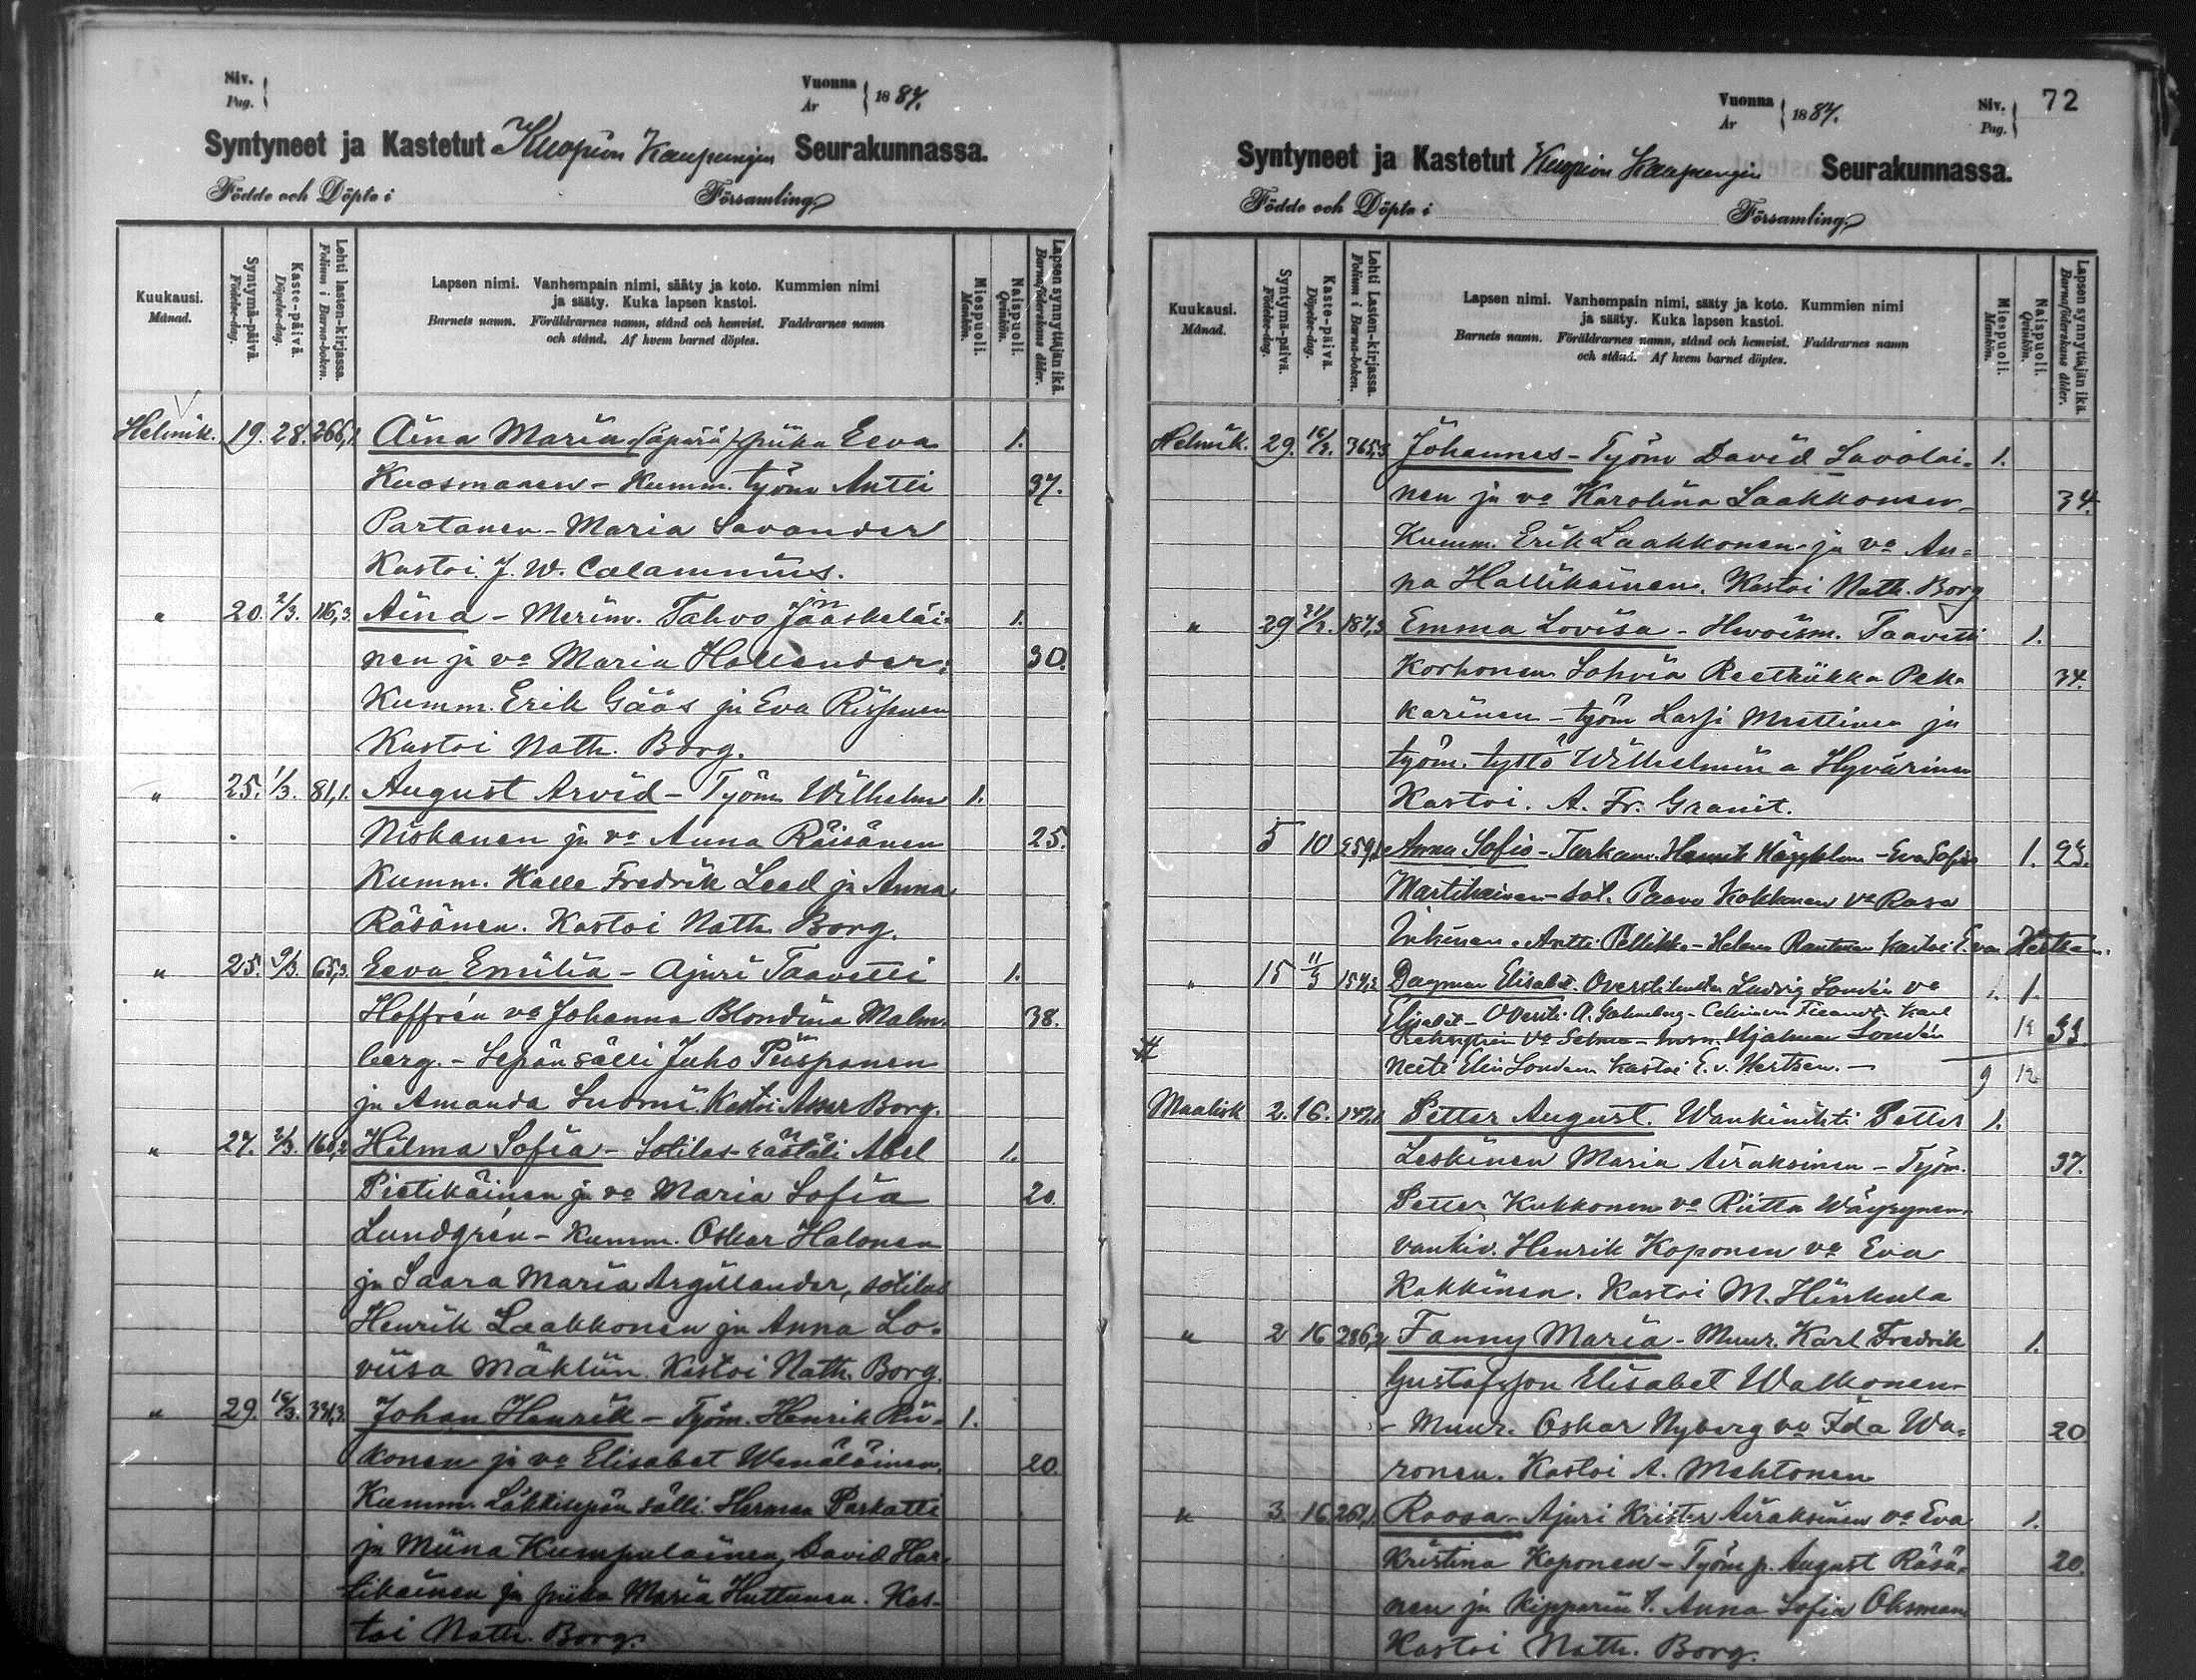 Niv.
Pag.
Vuonna
År
1884.
Syntyneet ja Kastetut Kuopion Kaupungin Seurakunnassa.
Födde och Döpte i Församling.
Kuukausi.
Månad.
Syntymä-päivä.
Födelse-dag.
Kaste-päivä.
Döpelse-dag.
Lehti lasten-kirjassa.
Folium i Barna-boken.
Lapsen nimi. Vanhempain nimi, sääty ja koto. Kummien nimi
ja sääty. Kuka lapsen kastoi.
Barnets namn. Föräldrarnes namn, stånd och hemvist. Faddrarnes namn
och stånd. Af hvem barnet döptes.
Miespuoli.
Mankön.
Naispuoli.
Qvinkön.
Lapsen synnyttäjän ikä.
Barnaföderskans ålder.
Helmik. 19. 28. 266,1 Aina Maria (äpärä) piika Eeva 1.
Kuosmanen - Kumm. työm Antti 37.
Partanen - Maria Savander
Kastoi J. W. Calamnius.
" 20. 2/3. 116,3. Aina - Merim. Tahvo Jääskeläi- 1.
nen ja vo Maria Hollender; 30.
Kumm. Erik Göös ja Eva Rissanen
Kastoi Nath. Borg.
" 25. 1/3. 81,1. August Arvid - Työm Wilhelm 1.
Niskanen ja vo Anna Räisänen 25.
Kumm. Kalle Fredrik Leed ja Anna
Räsänen. Kastoi Nath Borg.
" 25. 9/3. 65,3. Eeva Emilia - Ajuri Taavetti 1.
Hoffrén vo Johanna Blondina Malm- 38.
berg. - Sepän sälli Juho Piisponen
ja Amanda Suomi. Kastoi Assar Borg.
" 27. 2/3. 160,2 Hilma Sofia - Sotilas-räätäli Abel 1.
Pietikäinen ja vo Maria Sofia 20.
Lundgrén - Kumm. Oskar Halonen
ja Saara Maria Argillander, sotilas
Henrik Laakkonen ja Anna Lo-
viisa Mäklin. Kastoi Nath. Borg.
" 29. 16/3. 331,3. Johan Henrik - Työm. Henrik Rii- 1.
konen ja vo Elisabet Wenäläinen. 20.
Kumm. Läkkisepän sälli Herman Parkatti
ja Miina Kumpulainen, David Har-
tikainen ja piika Maria Huttunen. Kas-
toi Nath. Borg.
Vuonna
År
1884.
Niv.
Pag.
72
Syntyneet ja Kastetut Kuopion Kaupungin Seurakunnassa.
Födde och Döpte i Församling.
Kuukausi.
Månad.
Syntymä-päivä.
Födelse-dag.
Kaste-päivä.
Döpelse-dag.
Lehti Lasten-kirjassa.
Folium i Barna-boken.
Lapsen nimi. Vanhempain nimi, sääty ja koto. Kummien nimi
ja sääty. Kuka lapsen kastoi.
Barnets namn. Föräldrarnes namn, stånd och hemvist. Faddrarnes namn
och stånd. Af hvem barnet döptes.
Miespuoli.
Mankön.
Naispuoli.
Qvinkön.
Lapsen synnyttäjän ikä.
Barnaföderskans ålder.
Helmik. 29. 16/3. 365,3 Johannes - Työm David Savolai- 1.
nen ja vo Karolina Laakkonen- 34.
Kumm. Erik Laakkonen ja vo An-
na Hallikainen. Kastoi Nath. Borg
" 29 187,3 Emma Lovisa - Taavetti 1.
Korhonen Sohvia Reetriikka Pek- 34.
karinen - työm Lassi Miettinen ja
työm. tyttö Wilhelmiina Hyvärinen
Kastoi. A. Fr. Granit.
5 10 259,1 Anna Sofia - Henrik Häggblom - Eva Sofia 1. 23.
Martikainen - sot. Paavo Kokkonen vo Rosa
Inkinen - Antti Pellikka - Helena Rautanen kastoi E. von Hertzen.
" 15 11/3 154,2 Dagmar Elisabet. Ludvig Londén vo 1.
Elisabet - Karl 33.
vo Selma - Hjalmar Londén
neiti Elin Londén kastoi E. v. Hertzen. - 9 12
Maalisk 2. 16. 147,1 Petter August. Wankinihti Petter 1.
Leskinen Maria Airaksinen - Työm. 37.
Petter Kukkonen vo Riitta Wäyrynen-
vankiv. Henrik Koponen vo Eva
Kakkinen. Kastoi M. Hinkula
" 2 16 286,2 Fanny Maria - Muur. Karl Fredrik 1.
Gustafsson Elisabet Walkonen-
- Muur. Oskar Nyberg vo Ida Wa- 20
ronen. Kastoi A. Mehtonen
" 3. 16 261,1. Roosa - Ajuri Krister Airaksinen vo Eva 1.
Kristina Koponen - Työm p. August Räsä- 20.
nen ja kipparin t. Anna Sofia Ohsman
Kastoi Nath. Borg.